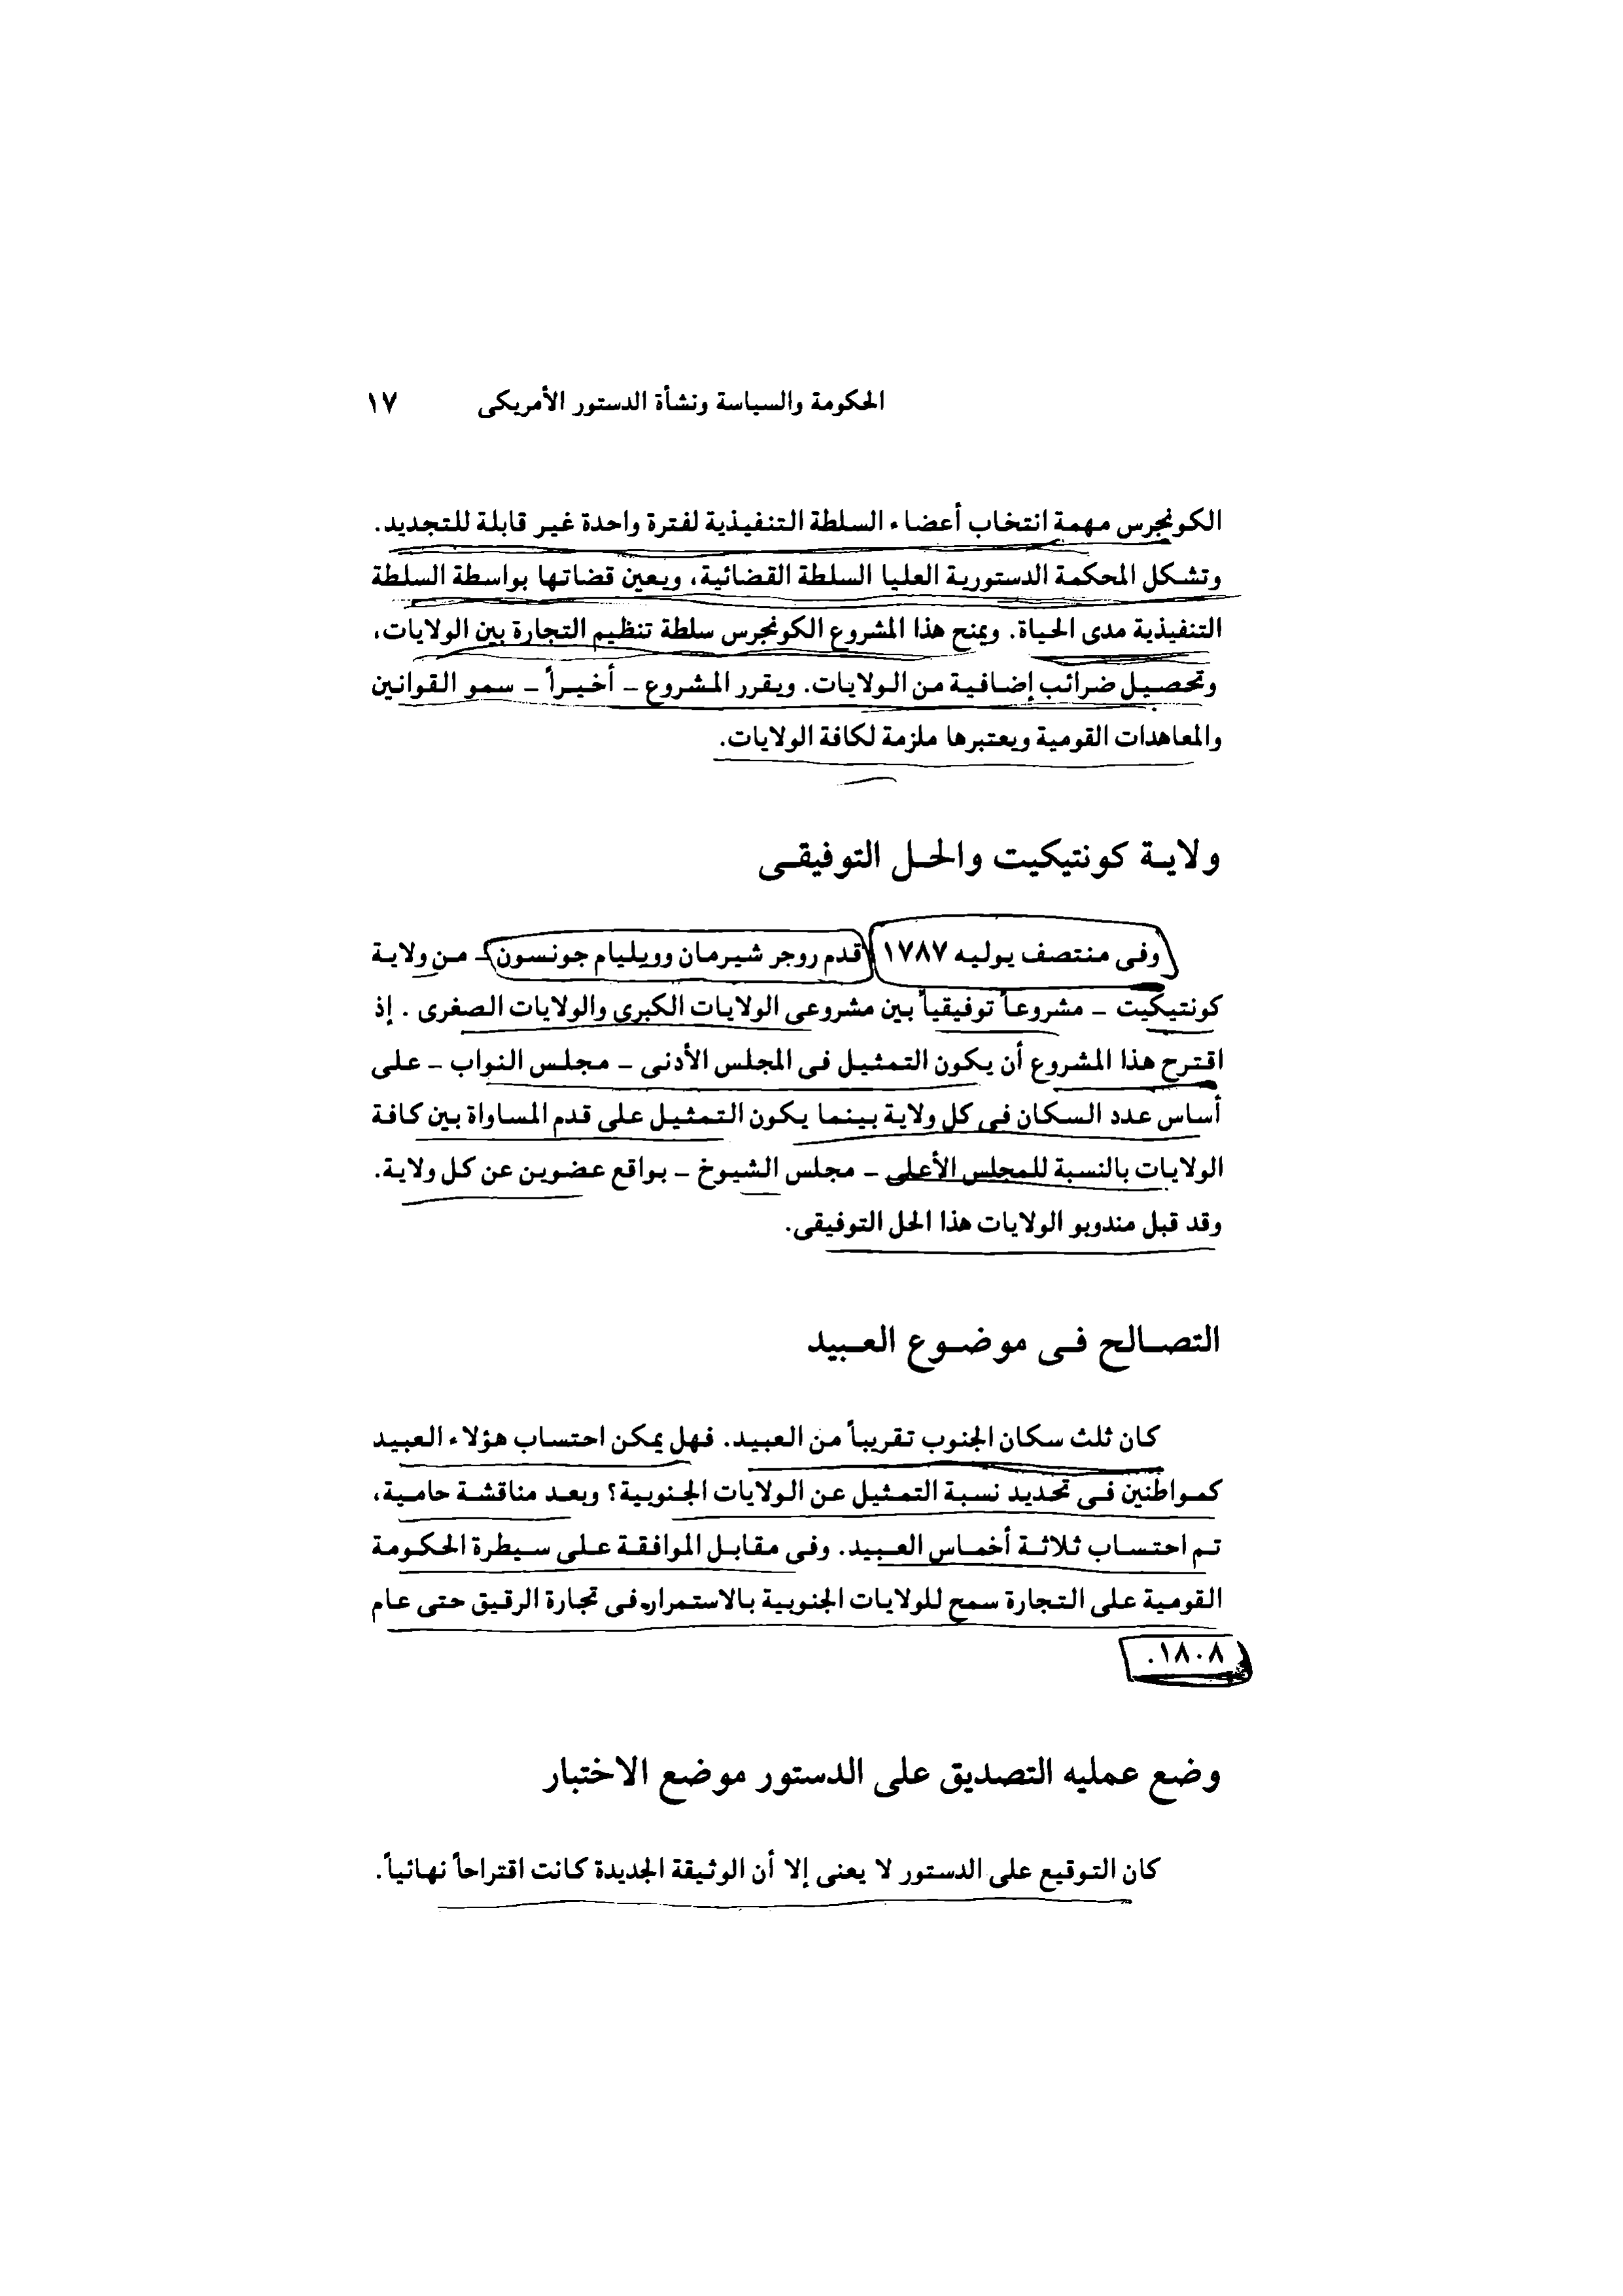 الحكومة والسياسة ونشأة الدستور الأمريكى ١٧
الكونجرس مهمة انتخاب أعضاء السلطة التنفيذية لفترة واحدة غير قابلة للتجديد.
وتشكل المحكمة الدستورية العليا السلطة القضائية، ويعين قضاتها بواسطة السلطة
التنفيذية مدى الحياة. ويمنح هذا المشروع الكونجرس سلطة تنظيم التجارة بين الولايات،
وتحصيل ضرائب إضافية من الولايات. ويقرر المشروع – أخيراً – سمو القوانين
والمعاهدات القومية ويعتبرها ملزمة لكافة الولايات.
ولاية كونتيكيت والحل التوفيقى
وفى منتصف يوليه ١٧٨٧ قدم روجر شيرمان وويليام جونسون – من ولاية
كونتيكيت – مشروعاً توفيقياً بين مشروعى الولايات الكبرى والولايات الصغرى . إذ
اقترح هذا المشروع أن يكون التمثيل فى المجلس الأدنى – مجلس النواب – على
أساس عدد السكان فى كل ولاية بينما يكون التمثيل على قدم المساواة بين كافة
الولايات بالنسبة للمجلس الأعلى – مجلس الشيوخ – بواقع عضوين عن كل ولاية.
وقد قبل مندوبو الولايات هذا الحل التوفيقى.
التصالح فى موضوع العبيد
كان ثلث سكان الجنوب تقريباً من العبيد. فهل يمكن احتساب هؤلاء العبيد
كمواطنين فى تحديد نسبة التمثيل عن الولايات الجنوبية؟ وبعد مناقشة حامية،
تم احتساب ثلاثة أخماس العبيد. وفى مقابل الموافقة على سيطرة الحكومة
القومية على التجارة سمح للولايات الجنوبية بالاستمرار فى تجارة الرقيق حتى عام
١٨٠٨.
وضع عمليه التصديق على الدستور موضع الاختبار
كان التوقيع على الدستور لا يعنى إلا أن الوثيقة الجديدة كانت اقتراحاً نهائياً.